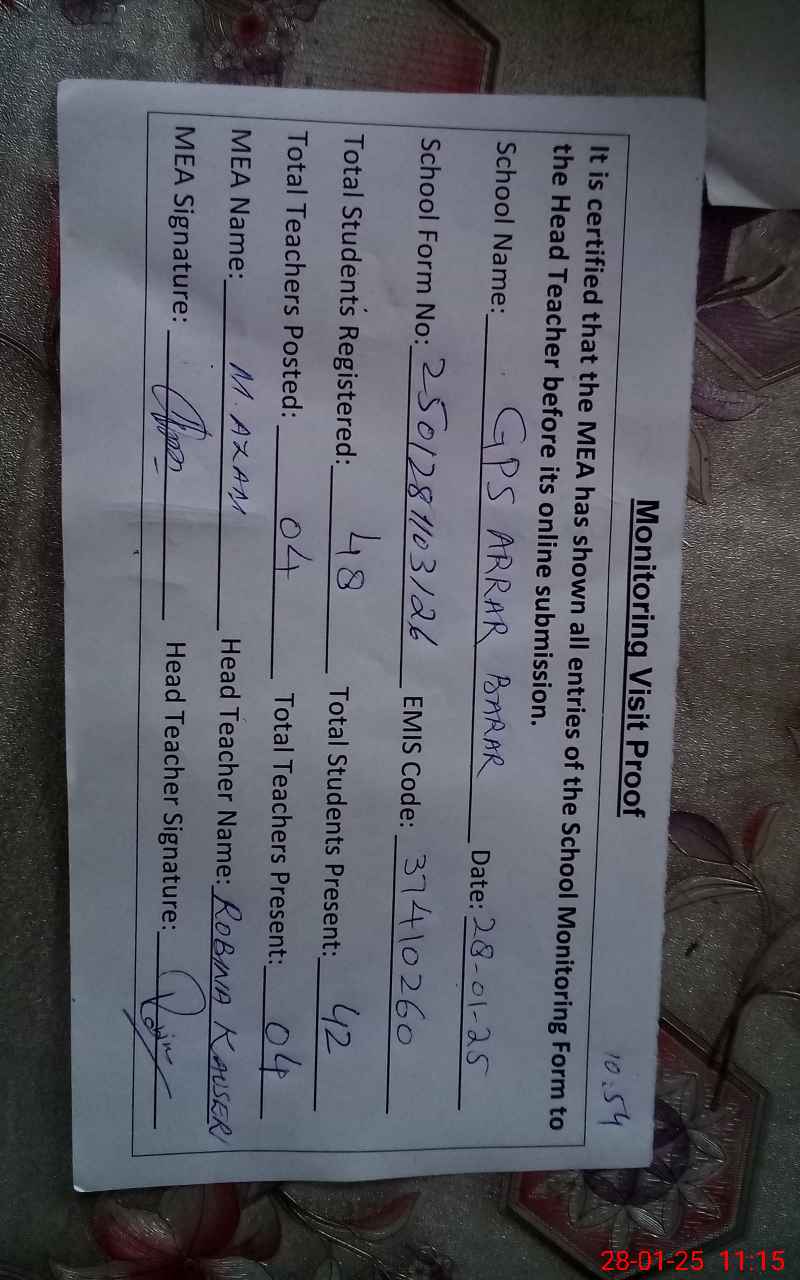 Monitoring Visit Proof
10:54
It is certified that the MEA has shown all entries of the School Monitoring Form to
the Head Teacher before its online submission.
School Name: GPS ARRAR BARAR Date: 28-01-25
School Form No: 2501281103126 EMIS Code: 37410260
Total Students Registered: 48 Total Students Present: 42
Total Teachers Posted: 04 Total Teachers Present: 04
MEA Name: M. AZAM Head Teacher Name: ROBINA KAUSER
MEA Signature: Head Teacher Signature:
28-01-25 11:15